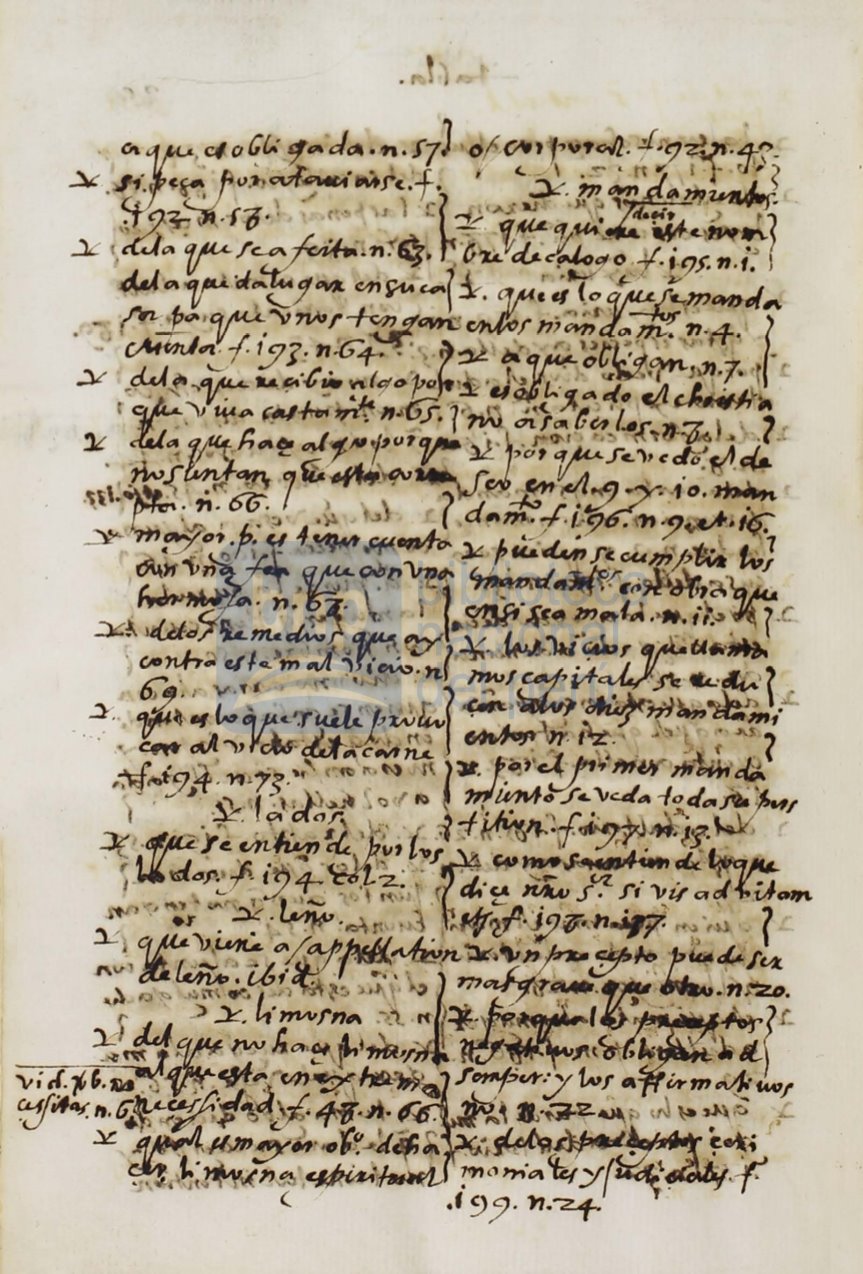 tabla.
a que es obligada. n. 57.
si peça por ataviarse. f.
192. n. 58.
dela que se afeita. n. 63.
dela que da lugar en su ca
sa pa que unos tengan
cuenta f. 193. n. 64.
dela que recibio algo por
que viva castamte. n. 65.
dela que haçe algo porque
no sientan que esta corru
pta. n. 66.
mayor. p. es tener cuenta
con una fea que con una
hermosa. n. 67.
delos remedios que ay
contra este mal vicio. n
69.
que es lo que suele provo
car al vicio dela carne
f. 194. n. 73.
lados.
que se entiende por los
lados. f. 194. col 2.
leño.
que viene a/appellation
de leño. ibid.
limosna
del que no haçe limosna
al que esta en extrema
vid. vb. ne
cessitas. n. 6.
necessidad. f. 48. n. 66.
qual es mayor obo. de ha
cer limosna espiritual
o/corporal. f. 92. n. 43.
mandamientos.
que quiere decir este nom
bre decalogo f. 195. n. 1.
que es lo que se manda
en los mandamtos. n. 4.
a que obligan. n. 7.
es obligado el christia
no a saberlos. n. 8.
por que se vedo el de
seo en el. 9. y. 10. man
damto. f. 196. n. 9. et. 16.
pueden se cumplir los
mandamtos. con obra que
en si sea mala. n. 11.
los vicios que llama
mos capitales se redu
cen alos diez mandami
entos n. 12.
por el primer manda
miento se veda toda supers
tition. f. 197. n. 13.
como se entiende lo que
dice nro sr. si vis ad vitam
etc. f. 198. n. 17.
un precepto puede ser
mas grave que otro. n. 20.
porque los preceptos
negativos obligan ad
semper: y los affirmativos
no. n. 22
delos preceptos ceri
moniales y judiciales f.
199. n. 24.